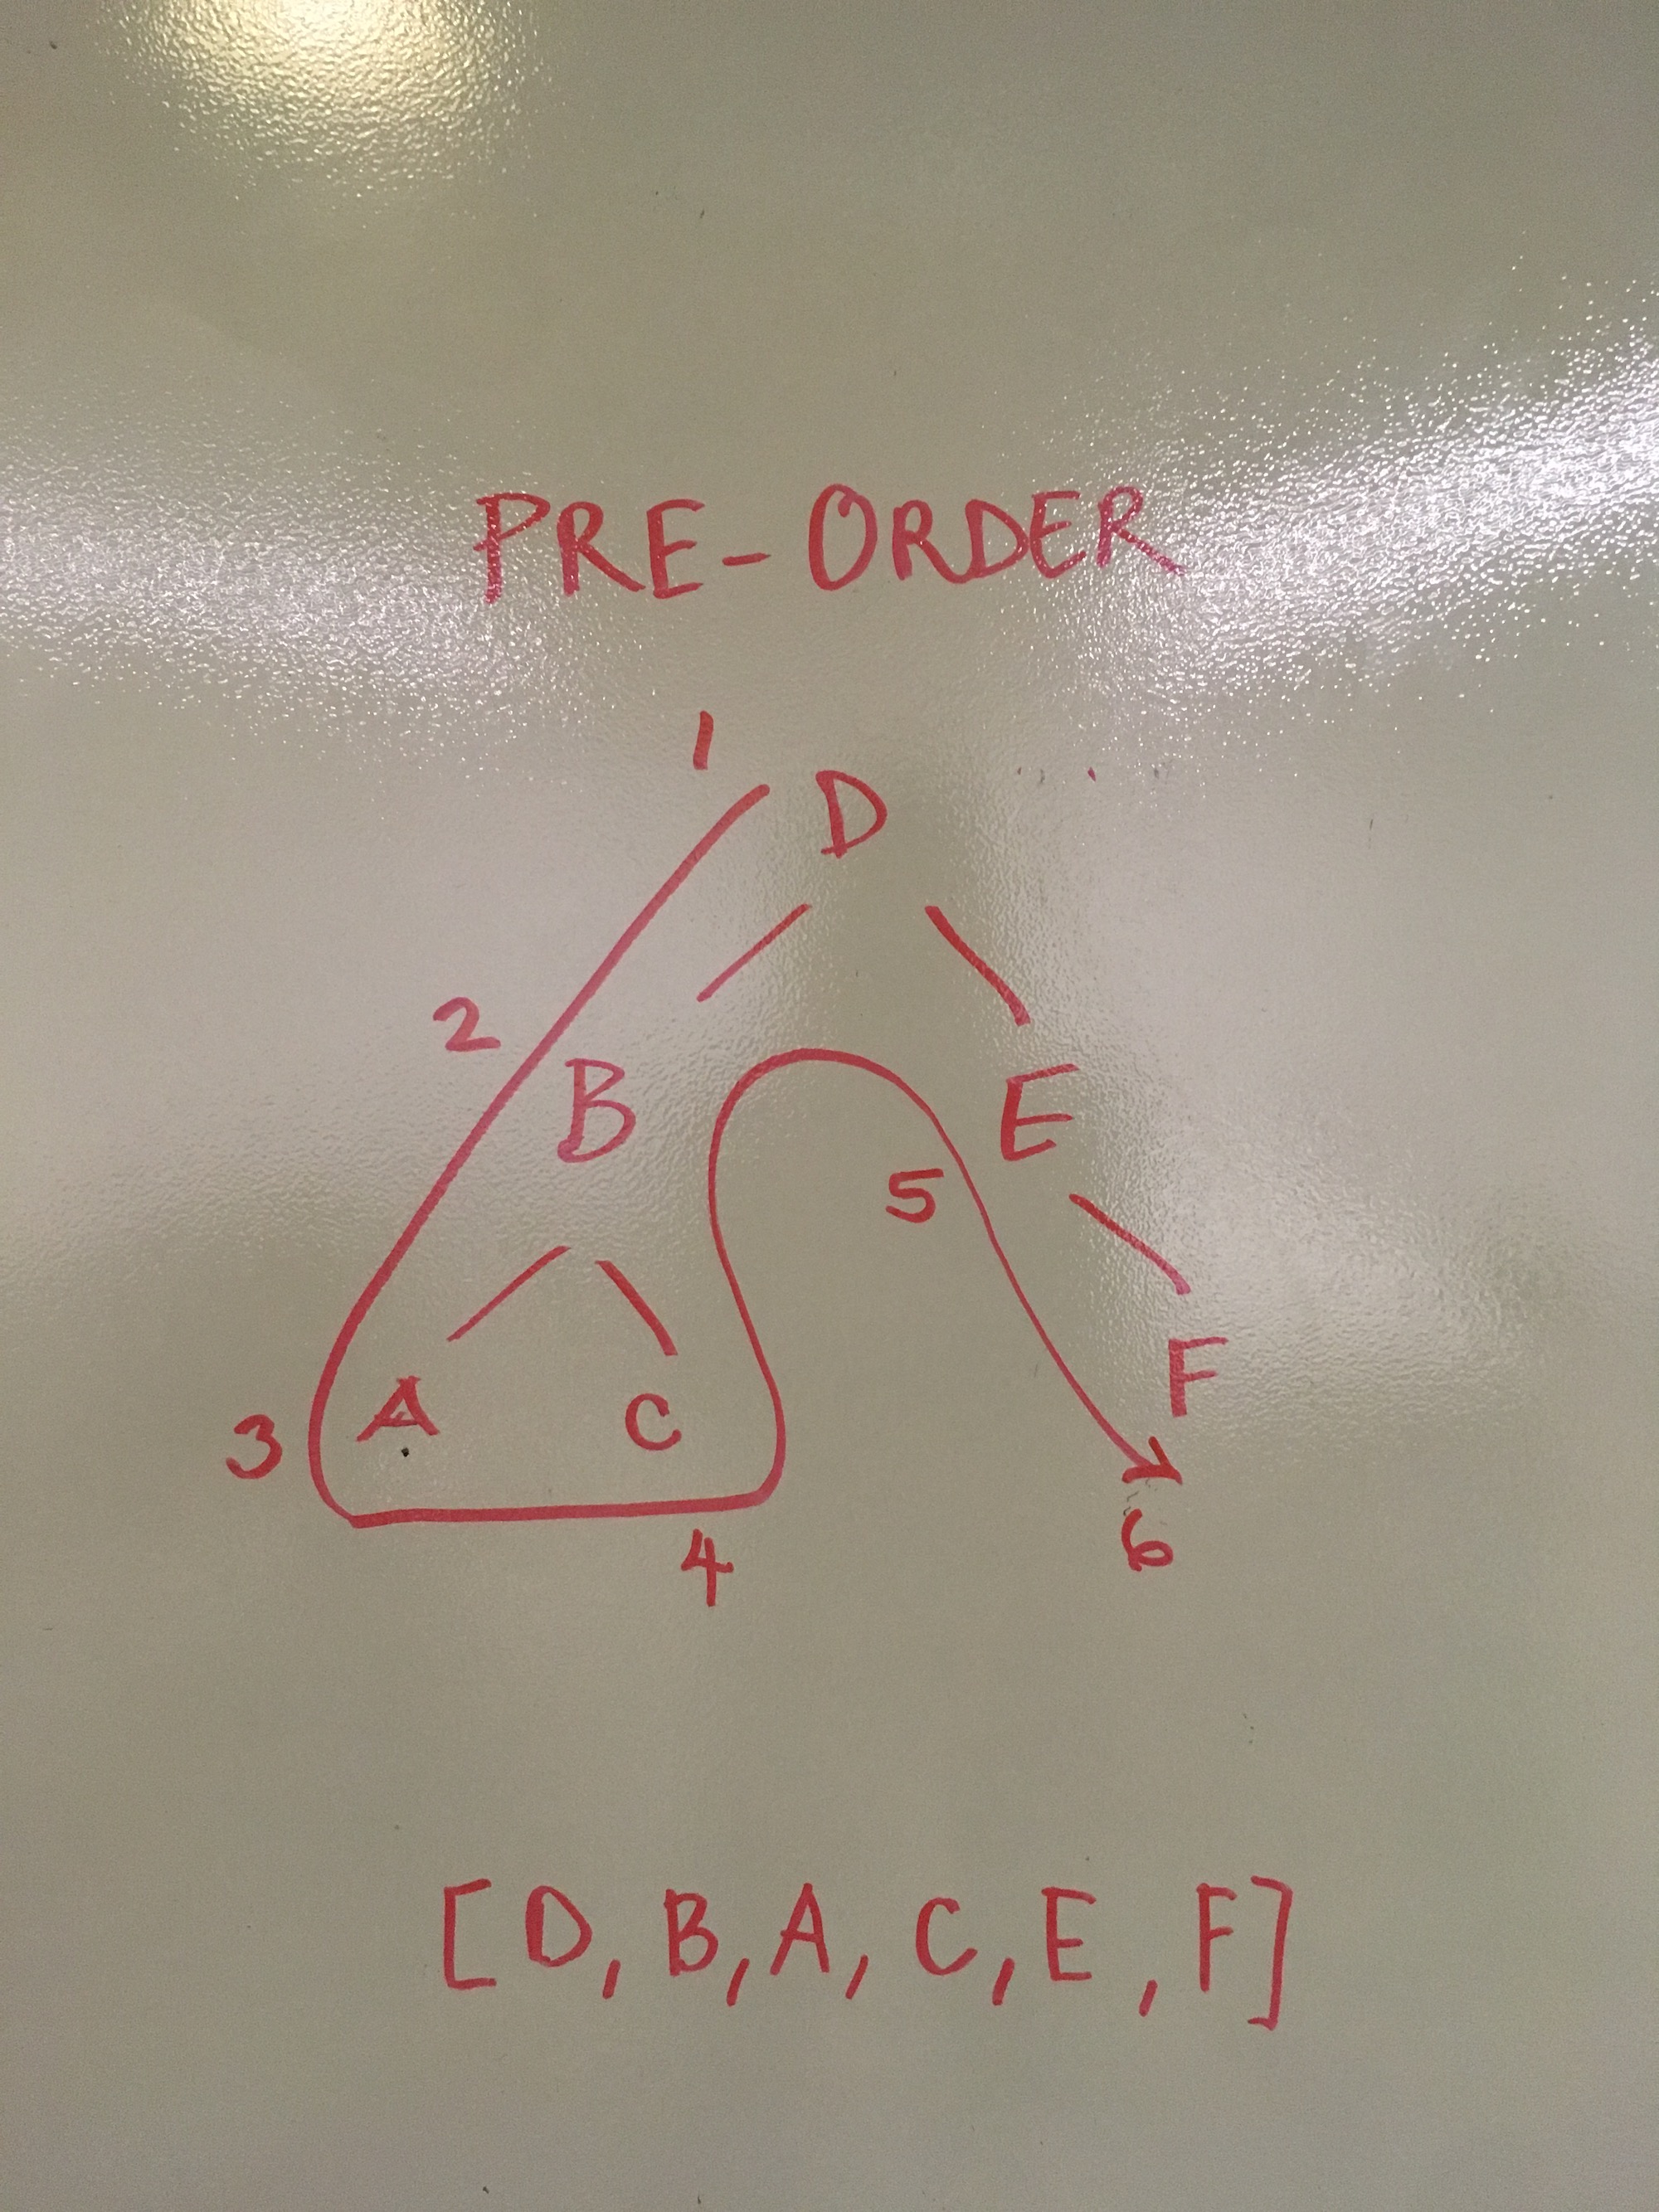 PRE-ORDER
1
D
2
B
E
5
A
C
F
3
4
6
[D, B, A, C, E, F]